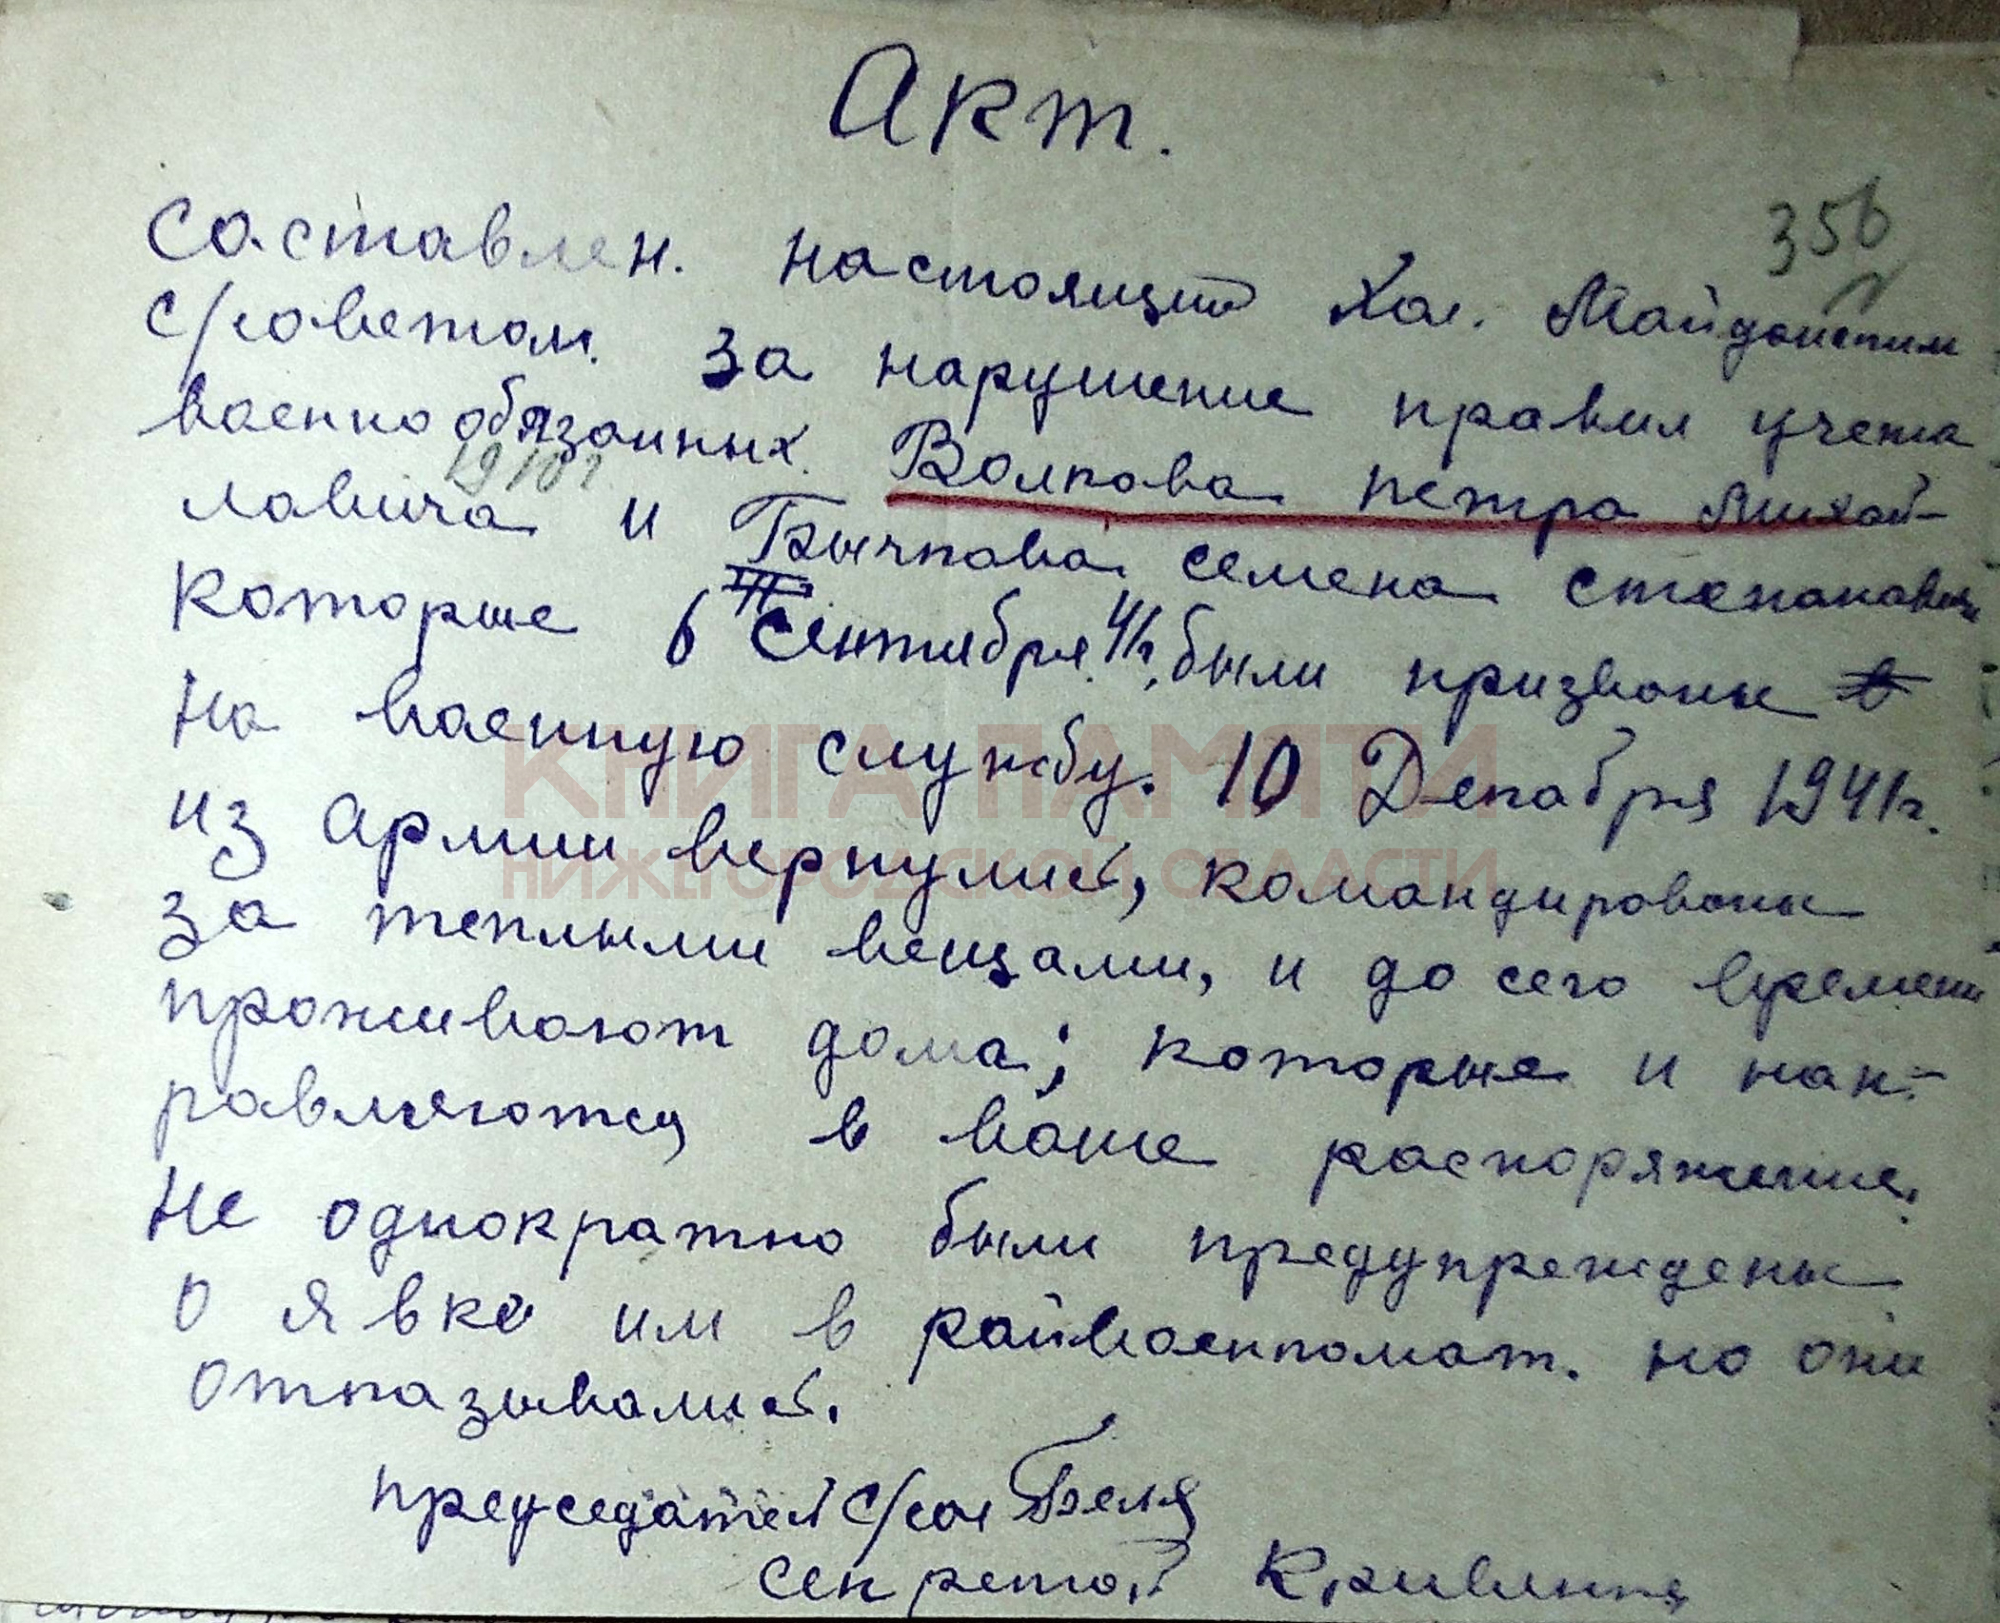 Акт.
356
составлен. настоящий Хол. Майданским
с/советом. за нарушение правил учета
военно обязанных. Волкова петра Михай-
1910г
ловича и Бычкова семена степанавич
которые 6 Сентября 41г, были призваны
на военную службу. 10 Декабря 1941г.
из армии вернулись, командированы
за теплыми вещами, и до сего времени
проживают дома; которые и нап-
равляются в ваше распоряжение.
Не однократно были предупреждены
о явке им в райвоенкомат. но они
отказывались.
председатель с/сов
секретарь
КНИГА ПАМЯТИ
НИЖЕГОРОДСКОЙ ОБЛАСТИ